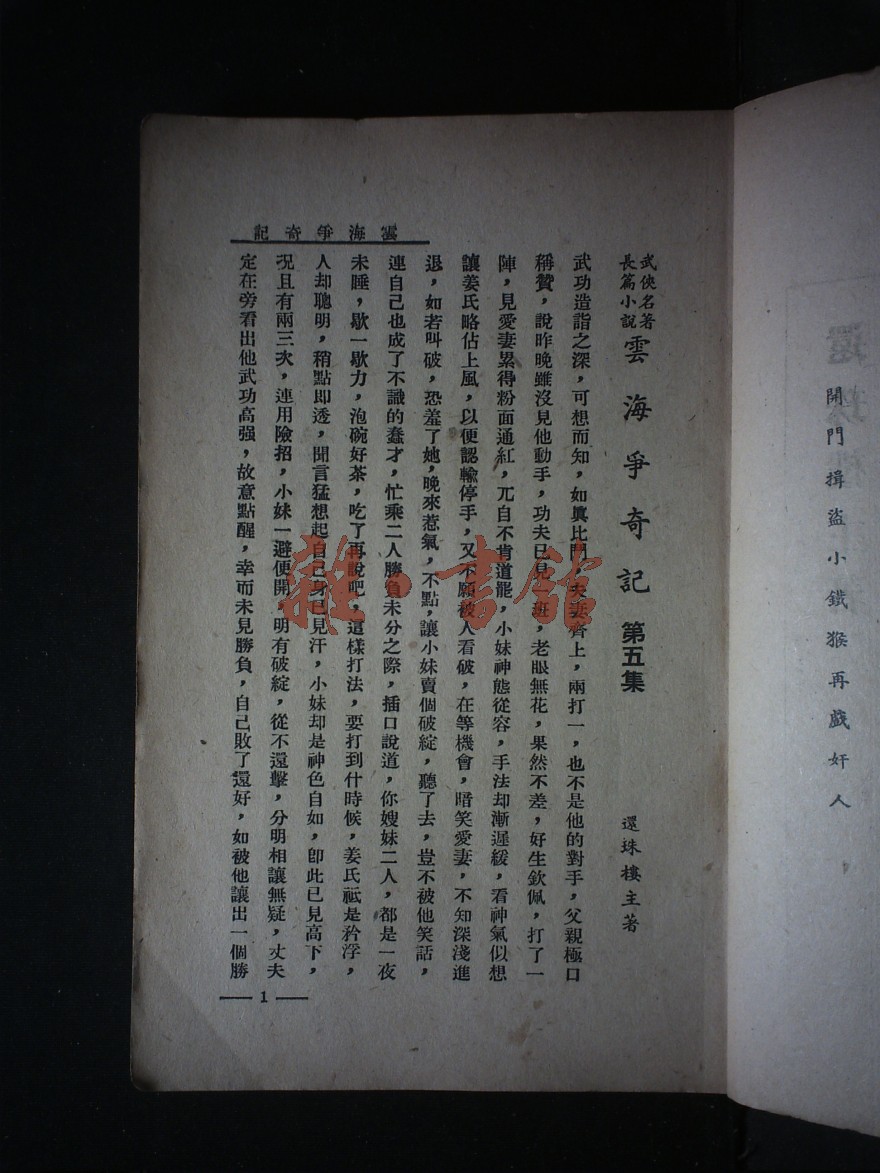 開門揖盜小鐵猴再戲奸人
武俠名著
長篇小說
雲海爭奇記 第五集
還珠樓主著
武功造詣之深，可想而知，如眞比鬥，夫妻齊上，兩打一，也不是他的對手，父親極口
稱贊，說昨晚雖沒見他動手，功夫已見一班，老眼無花，果然不差，好生欽佩，打了一
陣，見愛妻累得粉面通紅，兀自不肯道罷，小妹神態從容，手法却漸遲緩，看神氣似想
讓姜氏略佔上風，以便認輸停手，又不願被人看破，在等機會，暗笑愛妻，不知深淺進
退，如若叫破，恐羞了她，晚來惹氣，不點，讓小妹賣個破綻，聽了去，豈不被他笑話，
連自己也成了不識的蠢才，忙乘二人勝負未分之際，插口說道，你嫂妹二人，都是一夜
未睡，歇一歇力，泡碗好茶，吃了再說吧，這樣打法，要打到什時候，姜氏祇是矜浮，
人却聰明，稍點即透，聞言猛想起自己身已見汗，小妹却是神色自如，即此已見高下，
况且有兩三次，連用險招，小妹一避便開，明有破綻，從不還擊，分明相讓無疑，丈夫
定在旁看出他武功高强，故意點醒，幸而未見勝負，自己敗了還好，如被他讓出一個勝
雲海爭奇記
1
雜·書館